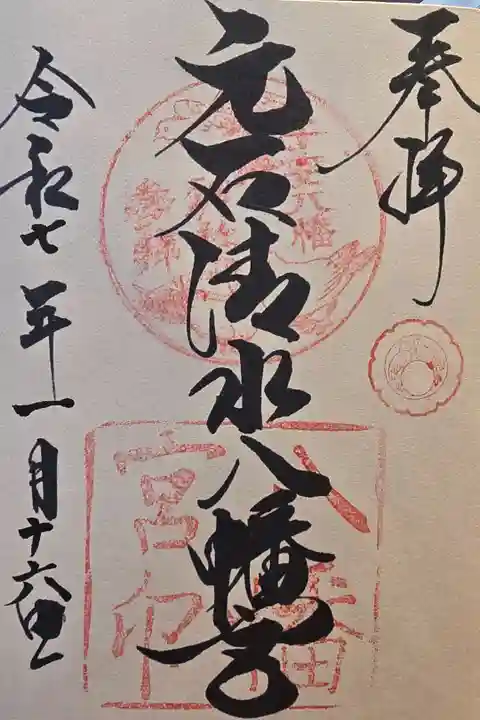 奉拝
元石清水八幡宮
令和七年一月十六日
八幡宮印